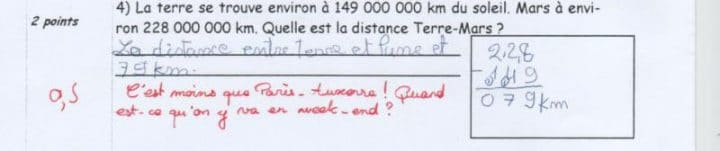 4) La terre se trouve environ à 149 000 000 km du soleil. Mars à envi-
2 points
ron 228 000 000 km. Quelle est la distance Terre-Mars ?
La distance entre Terre et Lune et
79 km.
228
- 149
079 km
0,5
C'est moins que Paris-Auxerre ! Quand
est-ce qu'on y va en week-end ?